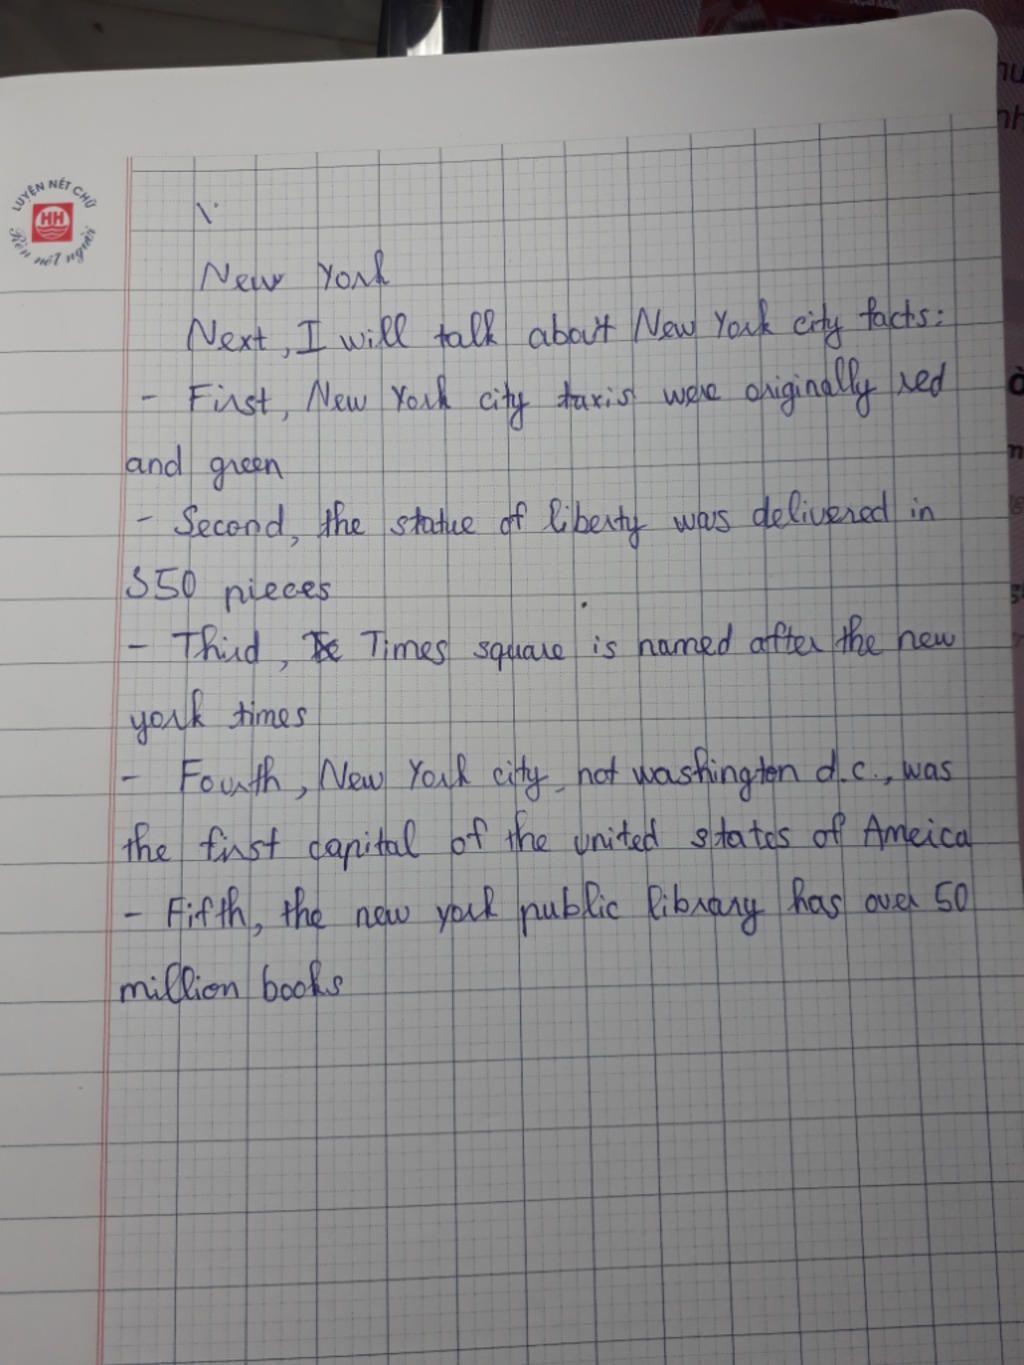 LUYỆN NÉT CHỮ
HH
Rèn nét người
New York
Next, I will talk about New York city facts:
- First, New York city taxis were originally red
and green
- Second, the statue of liberty was delivered in
350 pieces
- Third, Times square is named after the new
york times
- Fourth, New York city, not washington d.c., was
the first capital of the united states of Ameica
- Fifth, the new york public library has over 50
million books